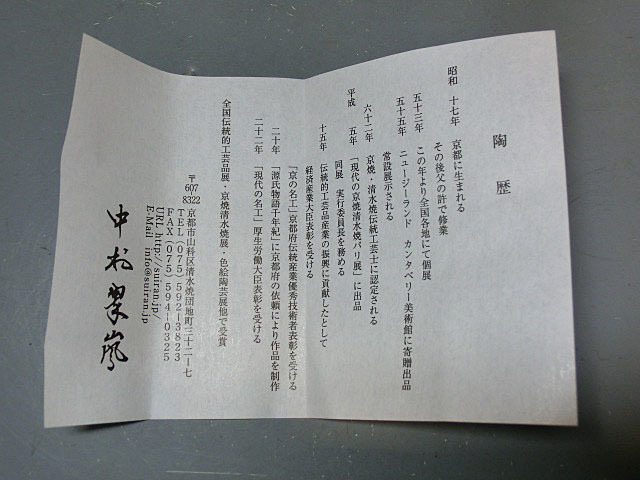 陶歴
昭和 十七年 京都に生まれる
その後父の許で修業
五十三年 この年より全国各地にて個展
五十五年 ニュージーランド カンタベリー美術館に寄贈出品
常設展示される
六十二年 京焼・清水焼伝統工芸士に認定される
平成 五年 「現代の京焼清水焼パリ展」に出品
同展 実行委員長を務める
十五年 伝統的工芸品産業の振興に貢献したとして
経済産業大臣表彰を受ける
「京の名工」京都府伝統産業優秀技術者表彰を受ける
二十年 「源氏物語千年紀」に京都府の依頼により作品を制作
二十二年 「現代の名工」厚生労働大臣表彰を受ける
全国伝統的工芸品展・京焼清水焼展・色絵陶芸展他で受賞
〒607-8322
京都市山科区清水焼団地町三十二―七
TEL(075)592-3823
FAX(075)594-0325
URL http://suiran.jp/
E-Mail info@suiran.jp
中村翠嵐